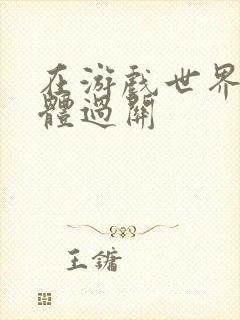 在游戏世界
體過關
王鏞